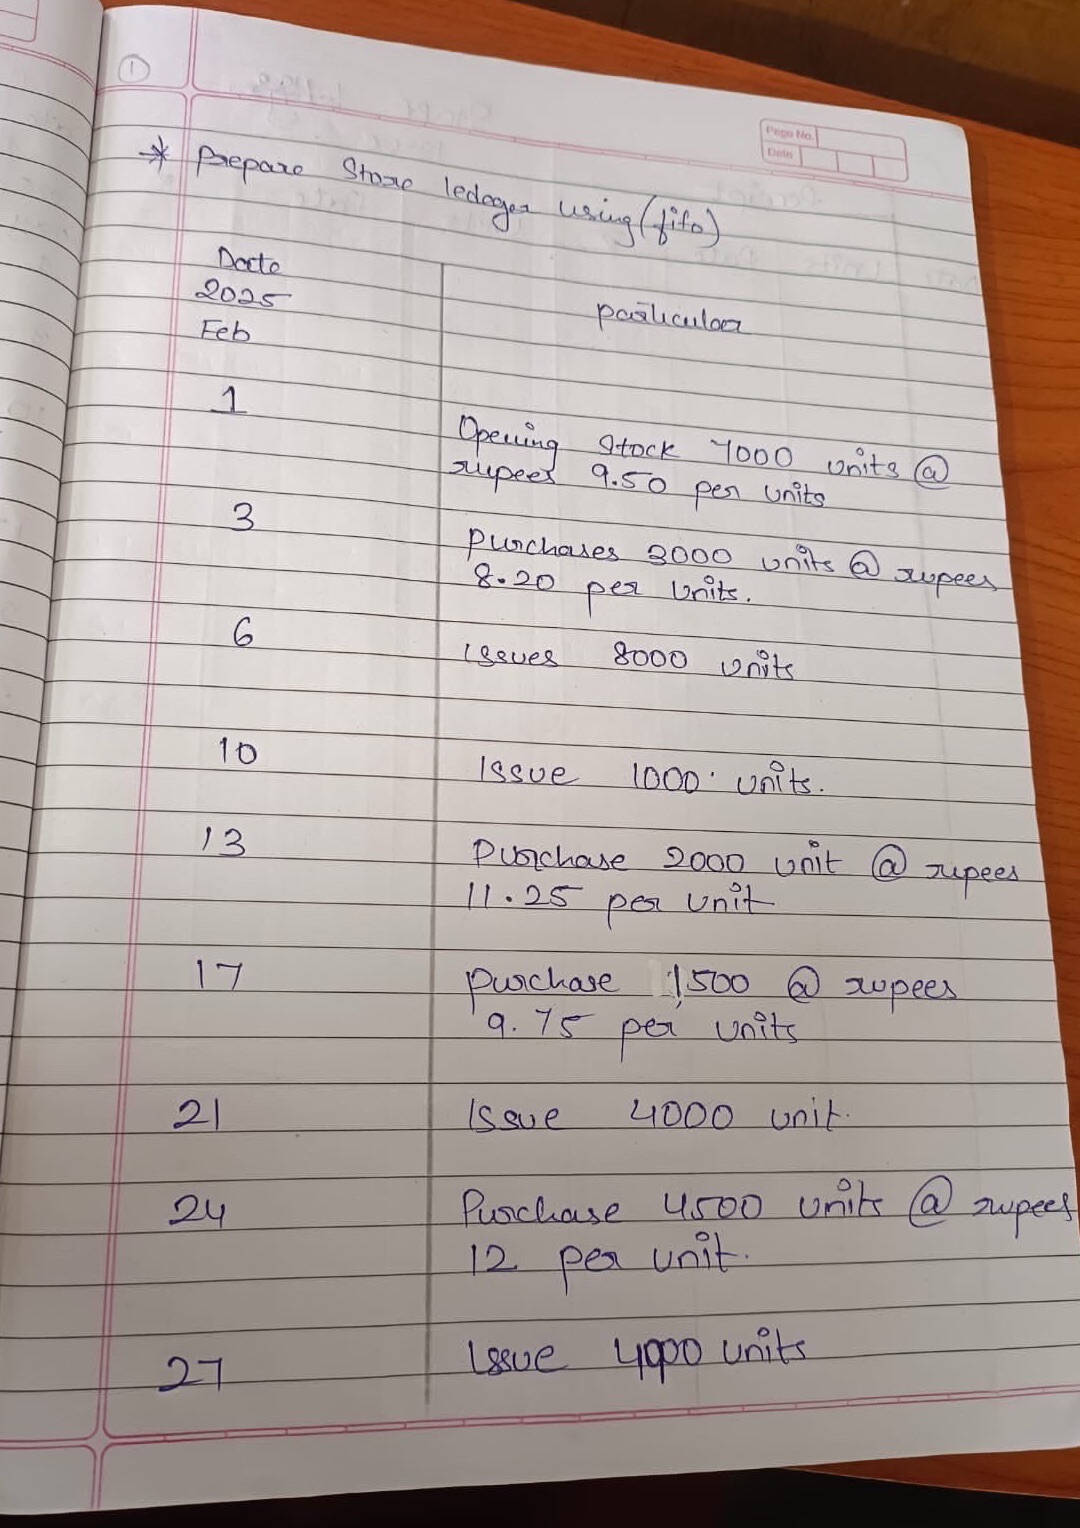 1
Page No.
Date
* Prepare Store ledger using (fifo)
Date
2025
Feb
particular
1
Opening Stock 7000 units @
rupees 9.50 per units
3
Purchases 3000 units @ rupees
8.20 per units.
6
Issues 8000 units
10
Issue 1000 units.
13
Purchase 2000 unit @ rupees
11.25 per unit
17
purchase 1500 @ rupees
9.75 per units
21
Issue 4000 unit.
24
Purchase 4500 units @ rupees
12 per unit.
27
Issue 4000 units